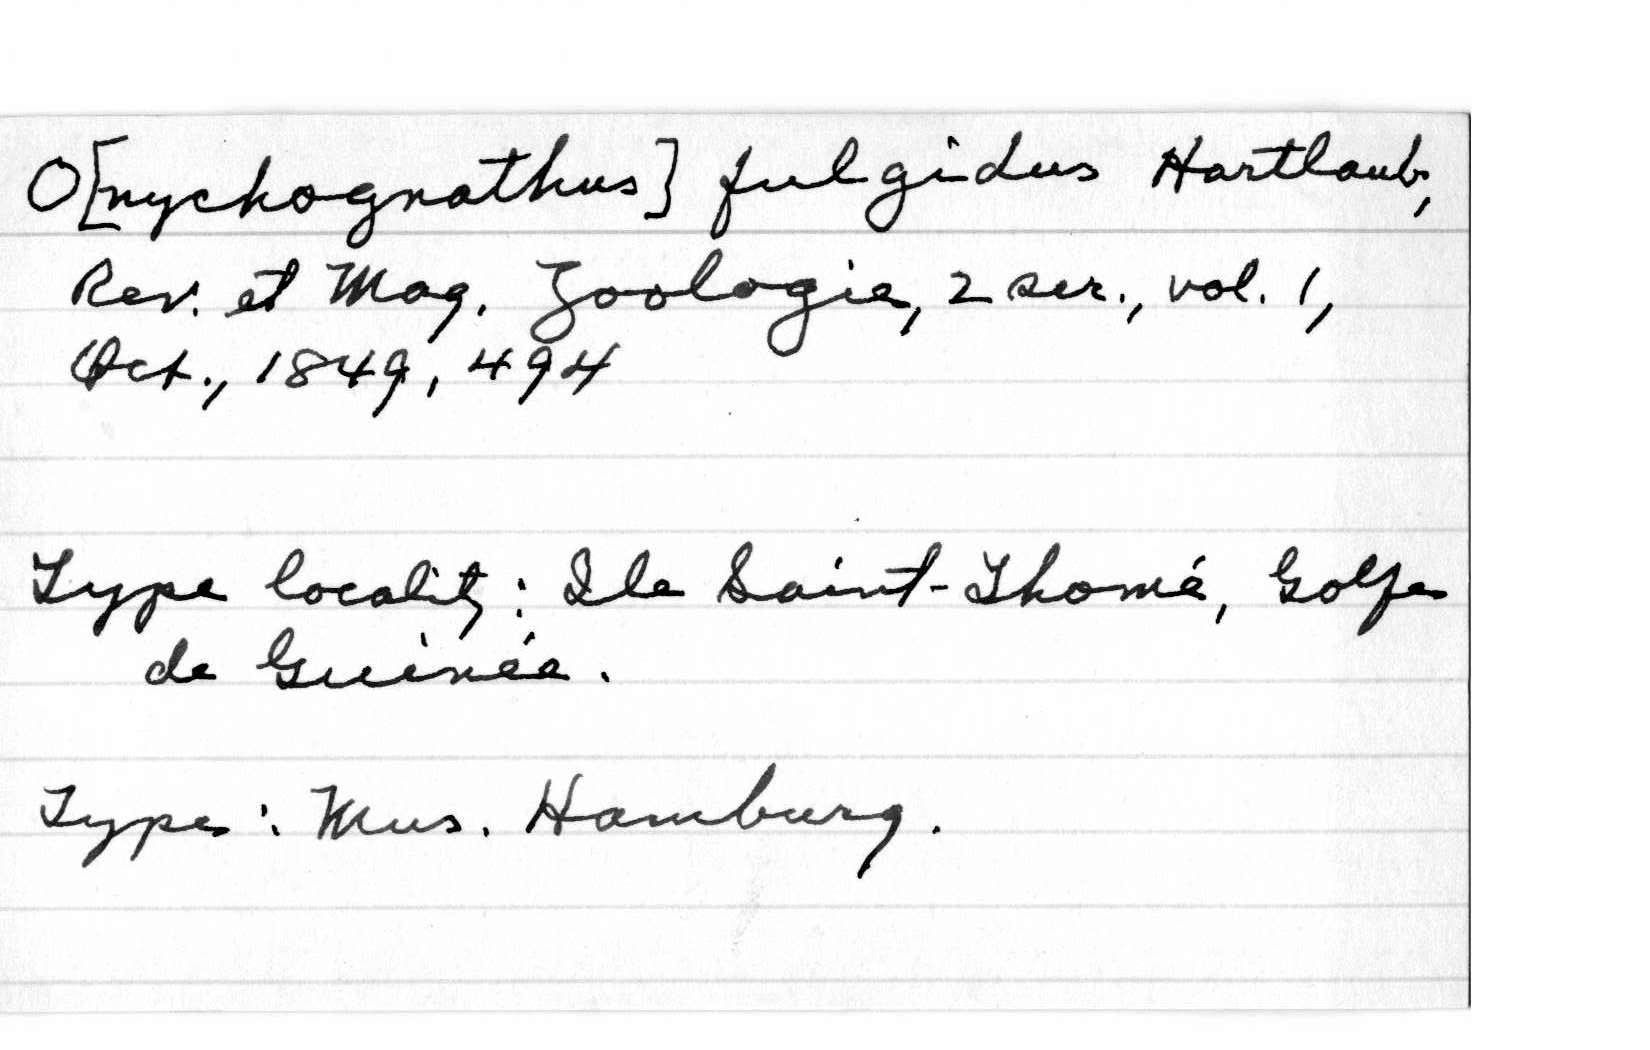 O[nychognathus] fulgidus Hartlaub,
Rev. et Mag. Zoologie, 2 ser., vol. 1,
Oct., 1849, 494
Type locality: Ile Saint-Thomé, Golfe
de Guinée.
Type: Mus. Hamburg.